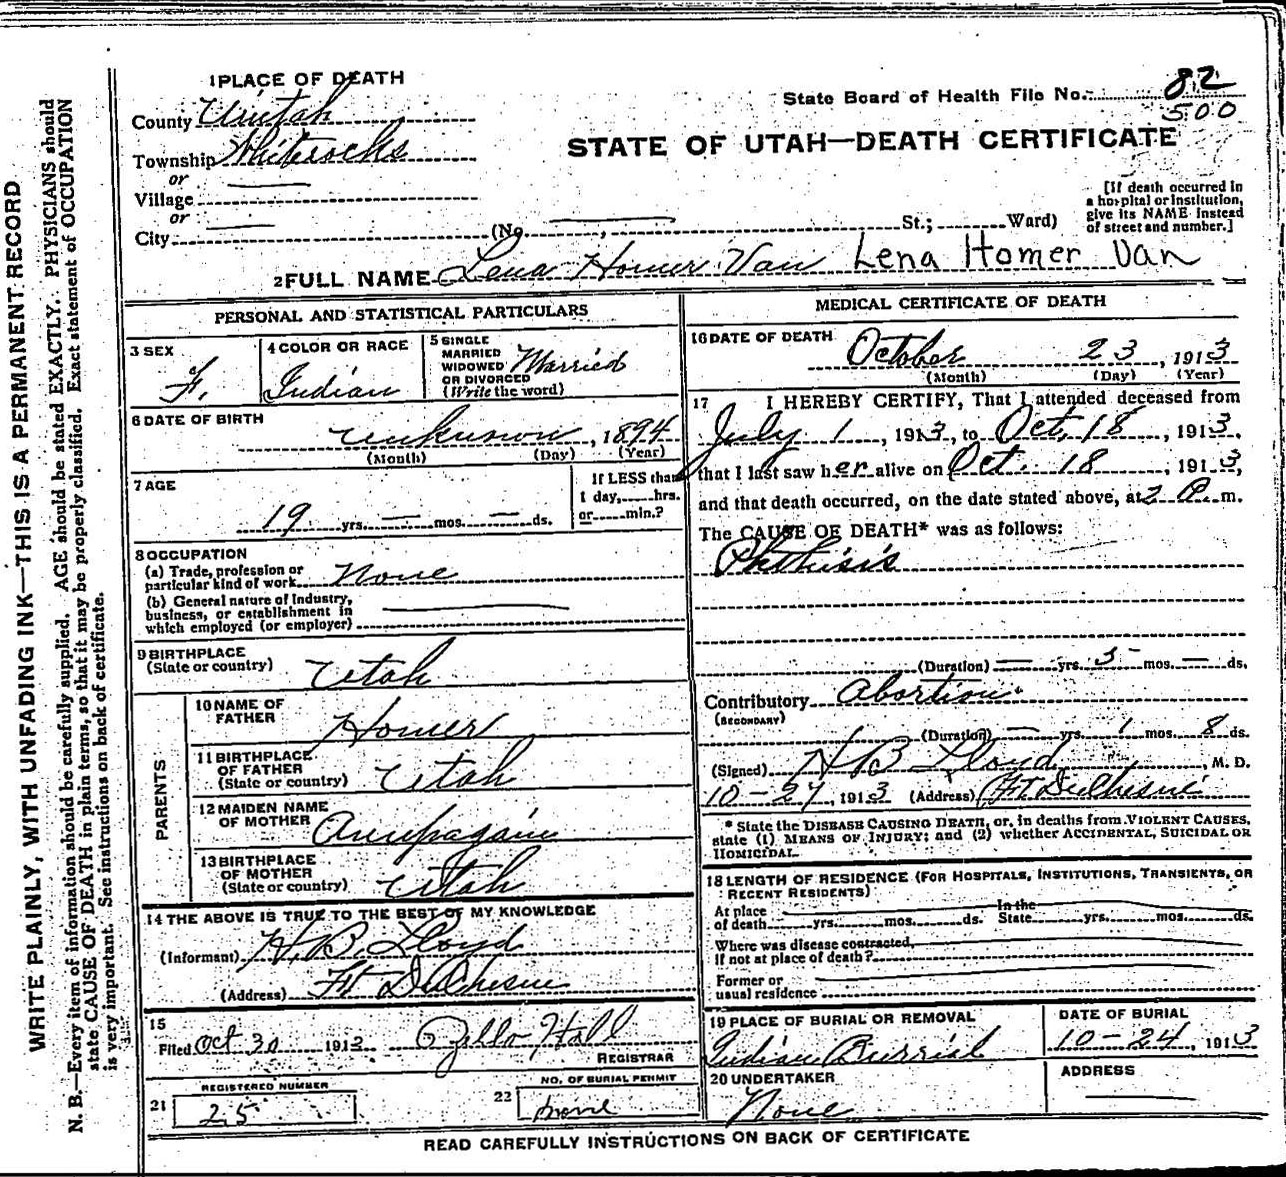 WRITE PLAINLY, WITH UNFADING INK—THIS IS A PERMANENT RECORD
N. B.—Every item of information should be carefully supplied. AGE should be stated EXACTLY. PHYSICIANS should
state CAUSE OF DEATH in plain terms, so that it may be properly classified. Exact statement of OCCUPATION
is very important. See instructions on back of certificate.
1 PLACE OF DEATH
State Board of Health File No. 82
500
County Uintah
STATE OF UTAH—DEATH CERTIFICATE
Township Whiterocks
or
Village
or
City (No. , St.; Ward)
[If death occurred in
a hospital or institution,
give its NAME instead
of street and number.]
2 FULL NAME Lena Homer Van Lena Homer Van
PERSONAL AND STATISTICAL PARTICULARS
3 SEX
F.
4 COLOR OR RACE
Indian
5 SINGLE
MARRIED
WIDOWED
OR DIVORCED
(Write the word)
Married
6 DATE OF BIRTH
unknown , 1894
(Month) (Day) (Year)
7 AGE
19 yrs. — mos. — ds.
If LESS than
1 day, hrs.
or min.?
8 OCCUPATION
(a) Trade, profession or
particular kind of work None
(b) General nature of industry,
business, or establishment in
which employed (or employer)
9 BIRTHPLACE
(State or country) Utah
PARENTS
10 NAME OF
FATHER Homer
11 BIRTHPLACE
OF FATHER
(State or country) Utah
12 MAIDEN NAME
OF MOTHER
13 BIRTHPLACE
OF MOTHER
(State or country) Utah
14 THE ABOVE IS TRUE TO THE BEST OF MY KNOWLEDGE
(Informant) H. B. Lloyd
(Address) Ft DuChesne
15
Filed Oct 30 1913 Hall
REGISTRAR
REGISTERED NUMBER
21 25
NO. OF BURIAL PERMIT
22 none
MEDICAL CERTIFICATE OF DEATH
16 DATE OF DEATH
October 23 , 1913
(Month) (Day) (Year)
17 I HEREBY CERTIFY, That I attended deceased from
July 1 , 1913, to Oct. 18 , 1913.
that I last saw her alive on Oct. 18 , 1913,
and that death occurred, on the date stated above, at 2 m.
The CAUSE OF DEATH* was as follows:
Phthisis
(Duration) — yrs. 3 mos. — ds.
Contributory Abortion
(SECONDARY)
(Duration) — yrs. 1 mos. 8 ds.
(Signed) H B Lloyd , M. D.
10-27, 1913 (Address) Ft DuChesne
* State the DISEASE CAUSING DEATH, or, in deaths from VIOLENT CAUSES,
state (1) MEANS OF INJURY; and (2) whether ACCIDENTAL, SUICIDAL OR
HOMICIDAL.
18 LENGTH OF RESIDENCE (FOR HOSPITALS, INSTITUTIONS, TRANSIENTS, OR
RECENT RESIDENTS)
At place
of death yrs. mos. ds.
In the
State yrs. mos. ds.
Where was disease contracted,
If not at place of death?
Former or
usual residence
19 PLACE OF BURIAL OR REMOVAL
Indian Burrial
DATE OF BURIAL
10-24, 1913
20 UNDERTAKER
None
ADDRESS
READ CAREFULLY INSTRUCTIONS ON BACK OF CERTIFICATE